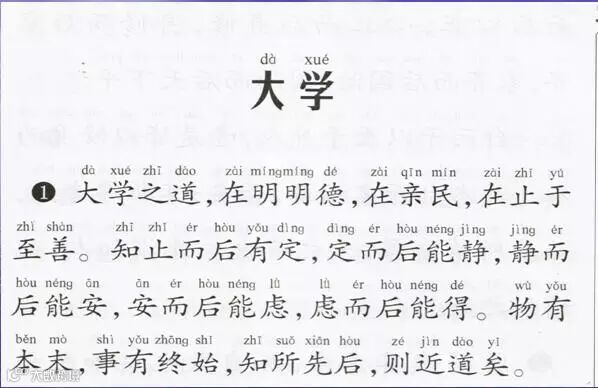 dà xué
大学
dà xué zhī dào zài míngmíng dé zài qīn mín zài zhǐ yú
❶大学之道,在明明德,在亲民,在止于
zhì shàn zhī zhǐ ér hòu yǒu dìng dìng ér hòu néng jìng jìng ér
至善。知止而后有定,定而后能静,静而
hòu néng ān ān ér hòu néng lǜ lǜ ér hòu néng dé wù yǒu
后能安,安而后能虑,虑而后能得。物有
běn mò shì yǒu zhōng shǐ zhī suǒ xiān hòu zé jìn dào yǐ
本末,事有终始,知所先后,则近道矣。